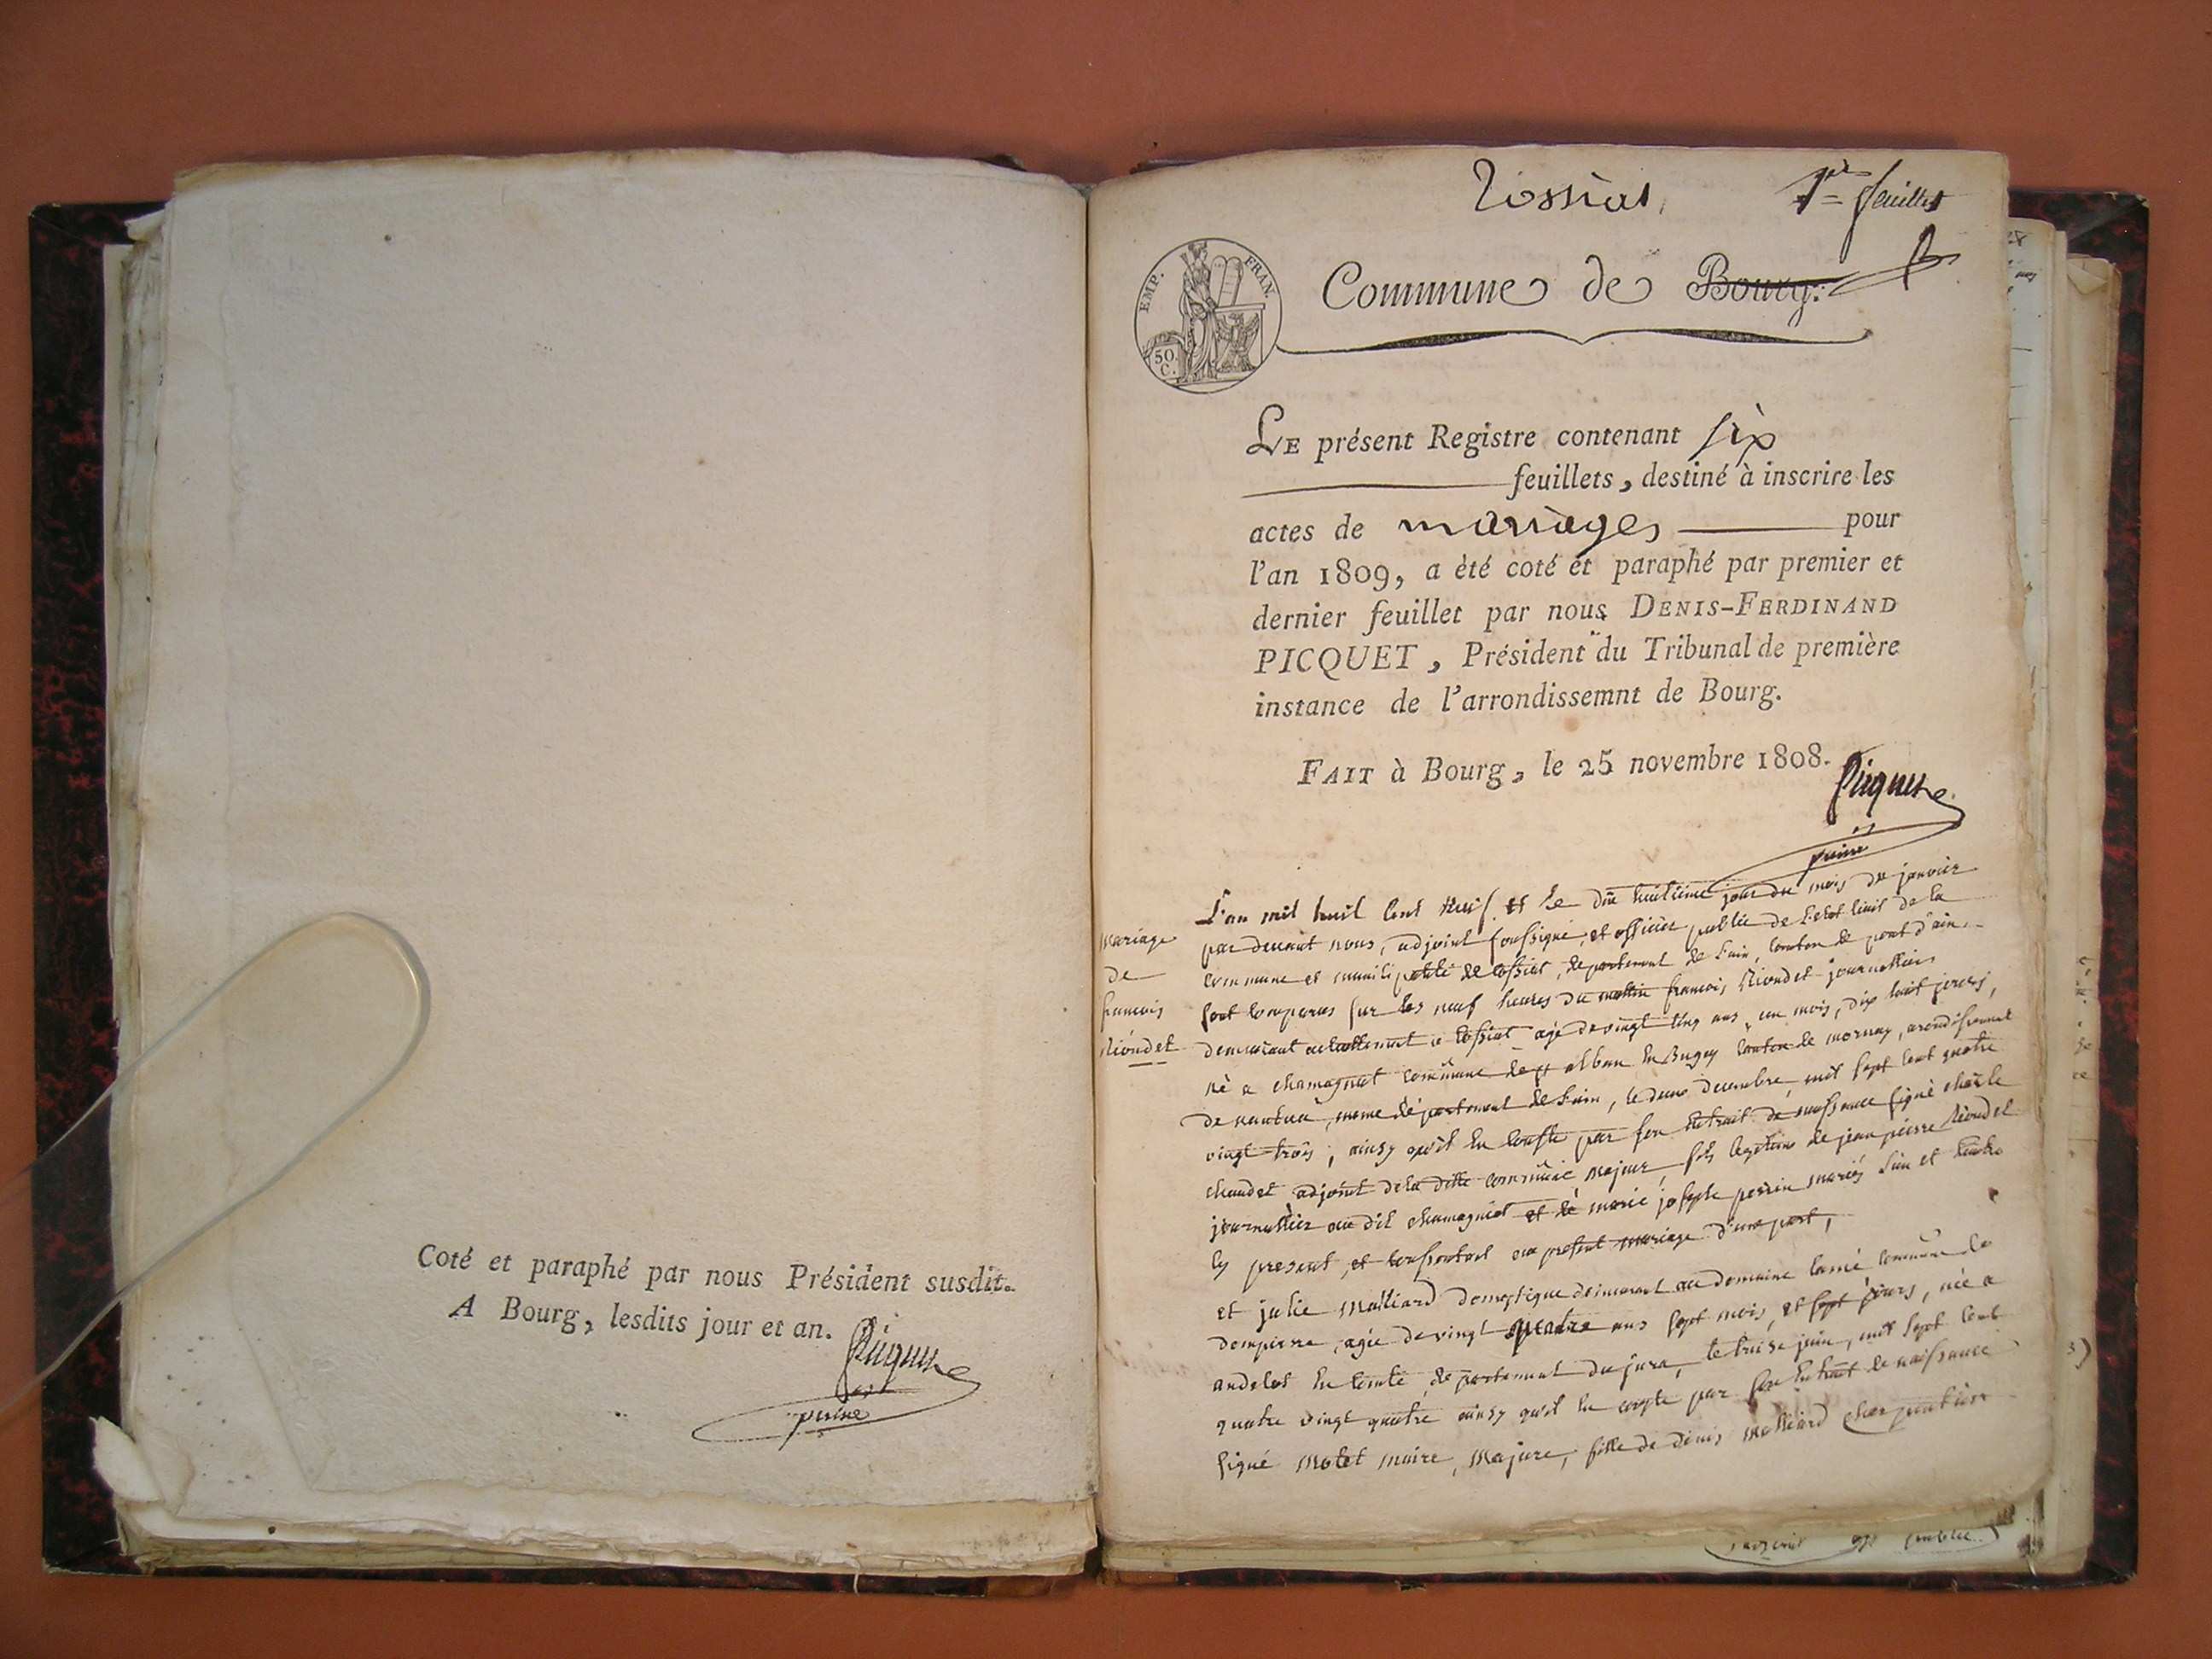 Coté et paraphé par nous Président susdit.
A Bourg, lesdits jour et an.
Picquet
1er feuillet
EMP. FRAN.
50 C.
Commune de Bourg:
LE présent Registre contenant six
feuillets, destiné à inscrire les
actes de mariages pour
l'an 1809, a èté coté et paraphé par premier et
dernier feuillet par nous DENIS-FERDINAND
PICQUET, Président du Tribunal de première
instance de l'arrondissemnt de Bourg.
FAIT à Bourg, le 25 novembre 1808.
Picquet
mariage
de
francois
Riondet
L'an mil huit cent neuf et le dix huitieme jour du mois de janvier
par devant nous, adjoint soussigné, et officier public de l'etat civil de la
commune et municipalité de tossiat, departement de l'ain, canton de pont d'ain
sont comparus sur les neuf heures du mattin francois Riondet journallier
demeurant actuellement a tossiat agé de vingt cinq ans un mois, dix huit jours,
né a chamagnat commune de st alban en Bugey canton de mornay, arondissement
de nantua, meme departement de l'ain, le deux decembre mil sept cent quatre
vingt trois, ainsy qu'il en conste par son extrait de naissance signé charle
chaudet adjoint de la ditte commune majeur, fils legitime de jean pierre Riondet
journallier au dit chamagniat et de marie josephe perrin mariés l'un et l'autre
icy present, et consentant au present mariage d'une part,
et julie Malliard domestique demeurant au domaine commune de
dompierre, agée de vingt quatre ans sept mois, et sept jours, née a
andelot en comté, departement du jura, le treise juin, mil sept cent
quatre vingt quatre ainsy qu'il en conste par son extrait de naissance
signé Motet maire, Majure, fille de denis Malliard charpentier